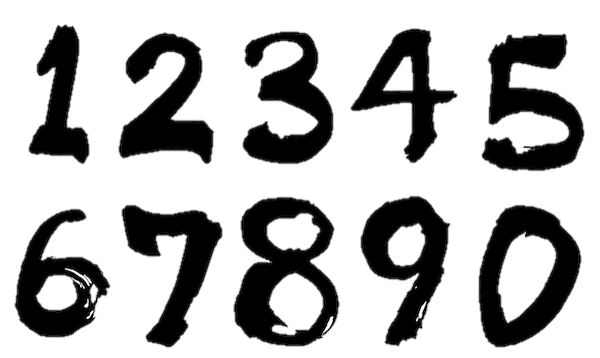 12345
67890